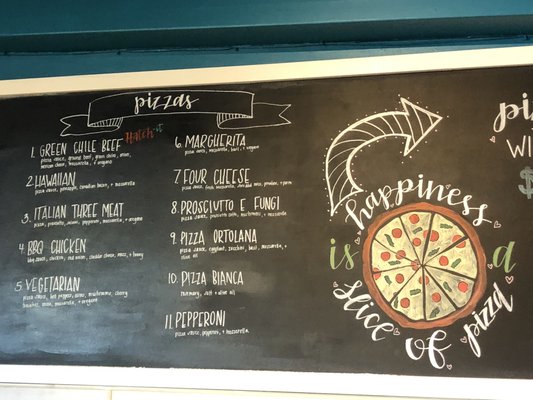 pizzas
1. GREEN CHILE BEEF Hatch-it
pizza sauce, ground beef, green chiles, onion,
cheese, mozzarella, + oregano
2. HAWAIIAN
pizza sauce, pineapple, canadian bacon, + mozzarella
3. ITALIAN THREE MEAT
pizza sauce, prosciutto, salami, pepperoni, mozzarella, + oregano
4. BBQ CHICKEN
bbq sauce, chicken, red onion, cheddar cheese, mozz, + honey
5. VEGETARIAN
pizza sauce, bell pepper, onion, mushrooms, cherry
tomatoes, mozzarella, + oregano
6. MARGHERITA
pizza sauce, mozzarella, basil, + oregano
7. FOUR CHEESE
pizza sauce, fresh mozzarella, + parm
8. PROSCIUTTO E FUNGI
pizza sauce, prosciutto cotto, mushrooms, + mozzarella
9. PIZZA ORTOLANA
pizza sauce, eggplant, zucchini, basil, mozzarella, +
olive oil
10. PIZZA BIANCA
rosemary, salt + olive oil
11. PEPPERONI
pizza sauce, pepperoni, + mozzarella
happiness
is a
slice of pizza
piz
WI
$